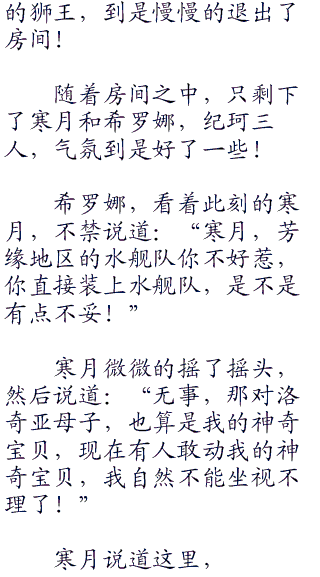 的狮王，到是慢慢的退出了
房间！
随着房间之中，只剩下
了寒月和希罗娜，纪珂三
人，气氛到是好了一些！
希罗娜，看着此刻的寒
月，不禁说道：“寒月，芳
缘地区的水舰队你不好惹，
你直接装上水舰队，是不是
有点不妥！”
寒月微微的摇了摇头，
然后说道：“无事，那对洛
奇亚母子，也算是我的神奇
宝贝，现在有人敢动我的神
奇宝贝，我自然不能坐视不
理了！”
寒月说道这里，